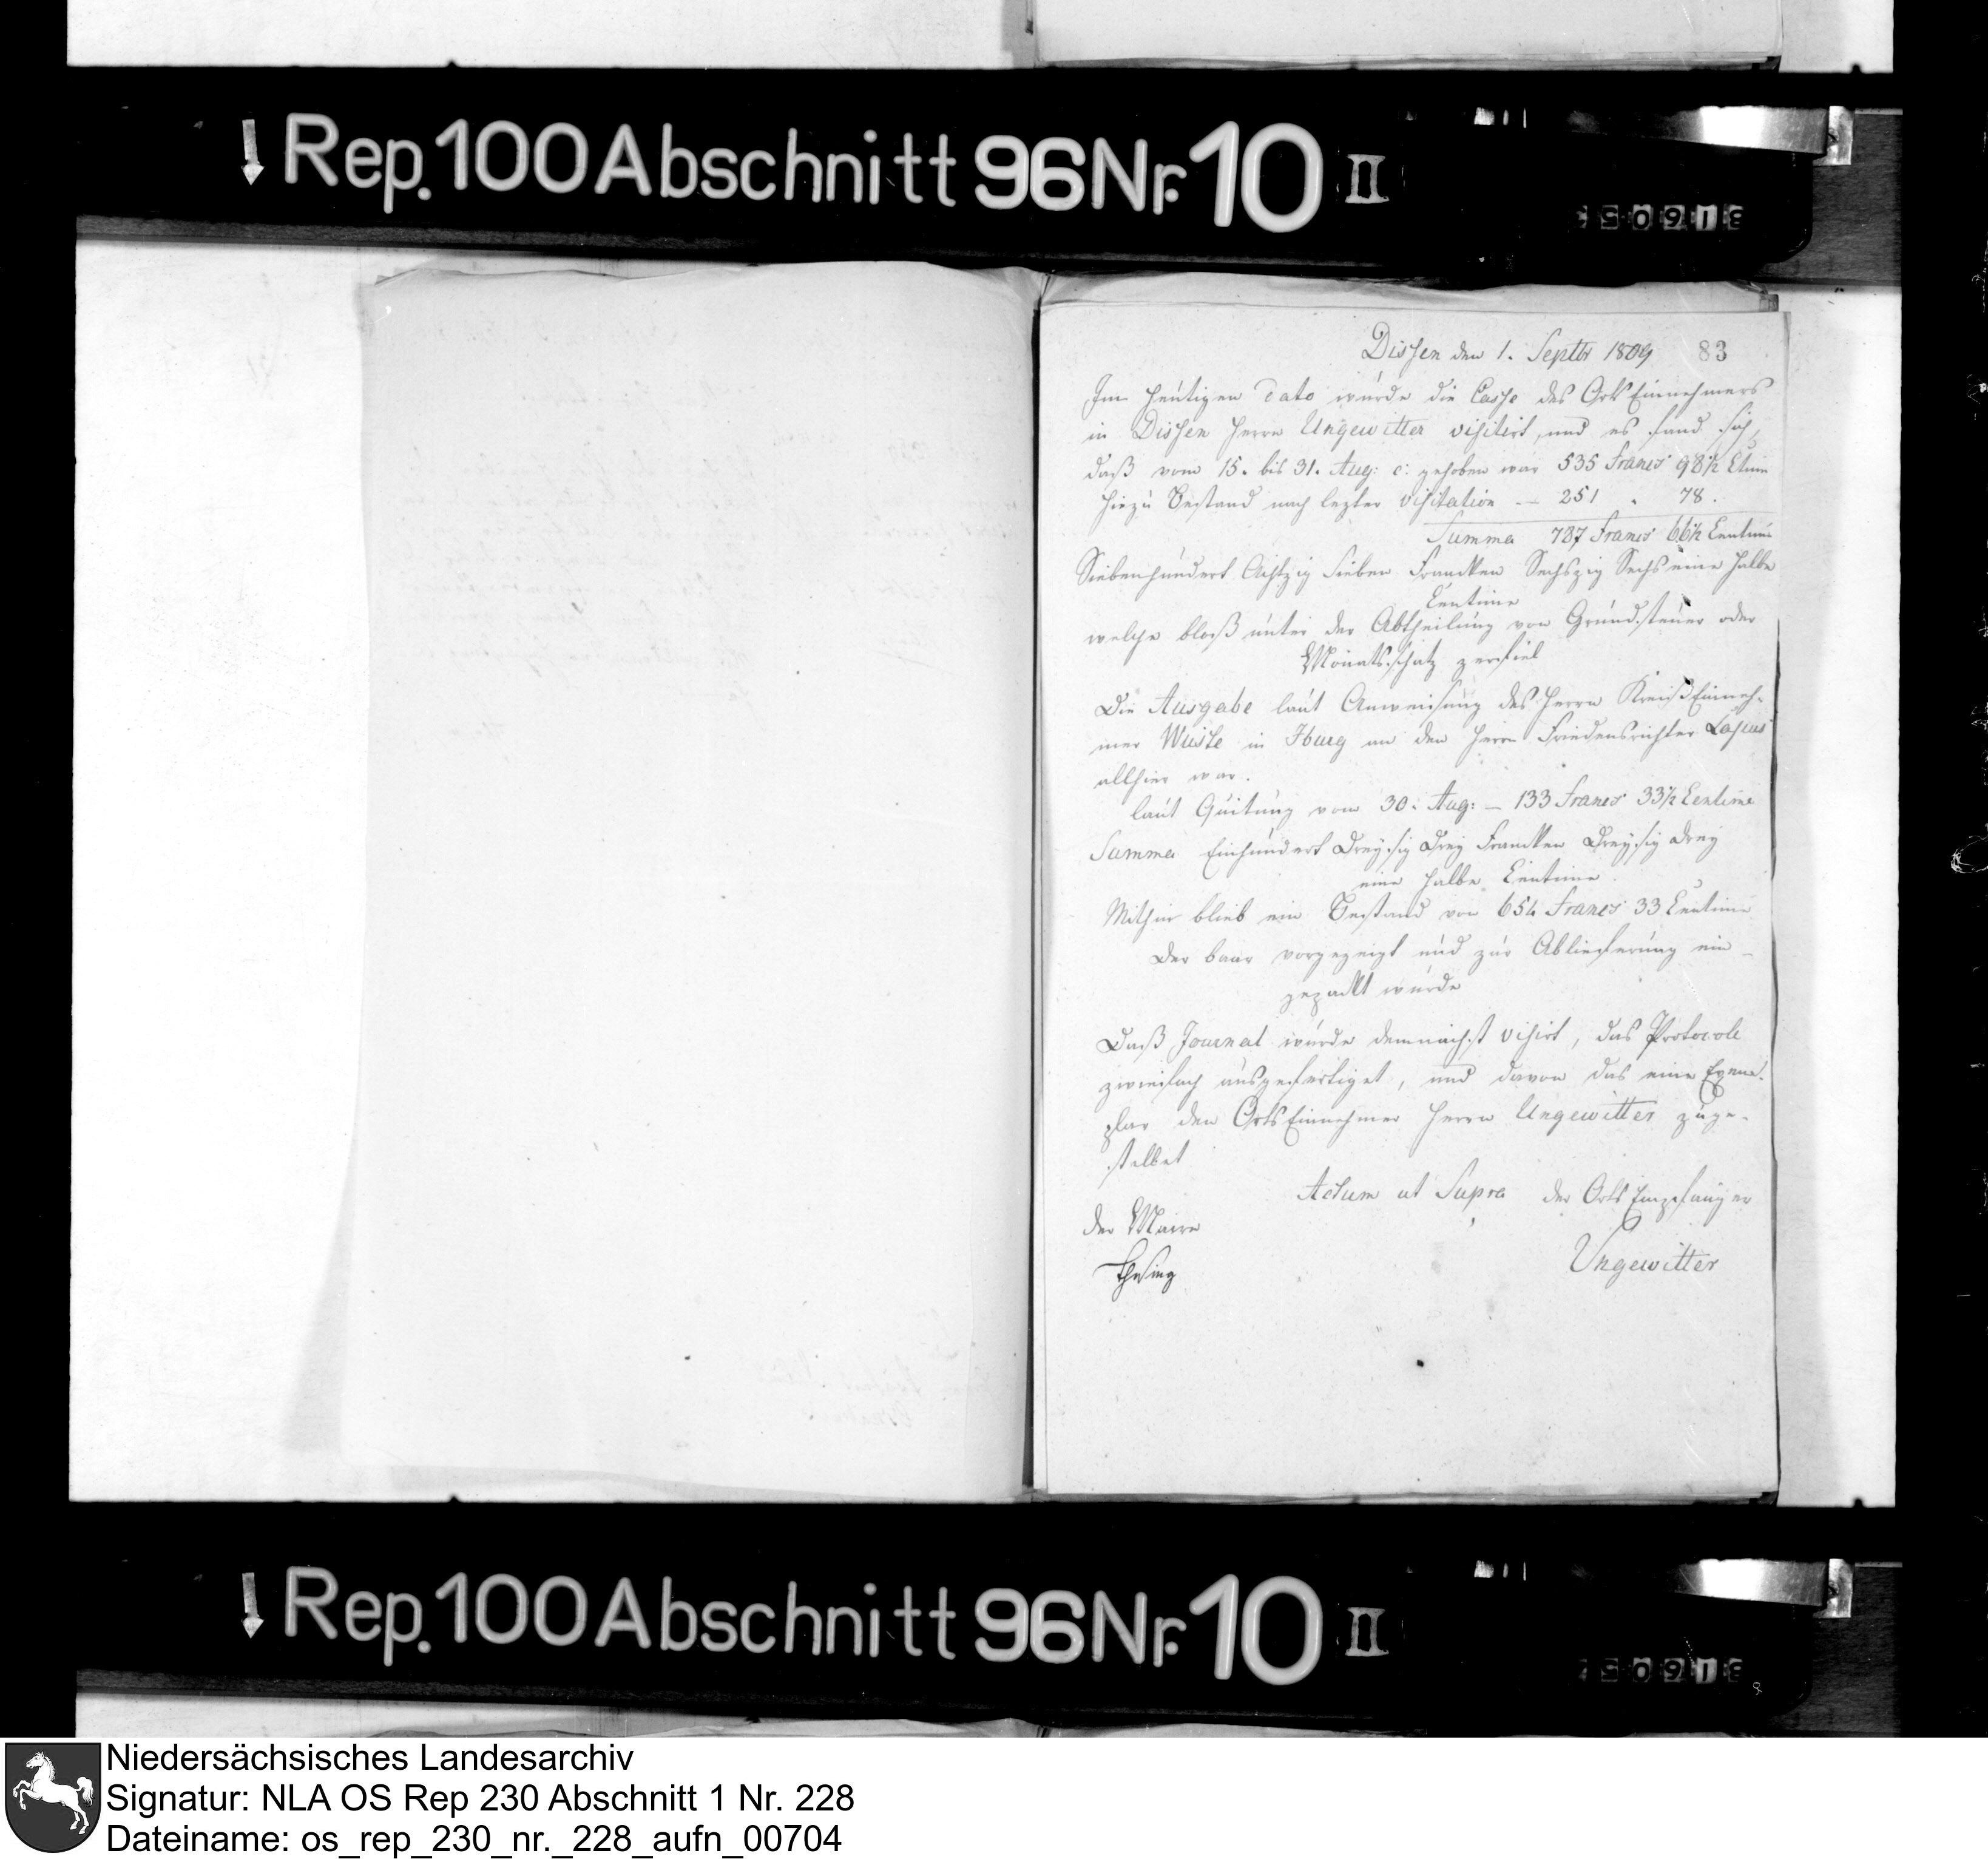 Rep. 100 Abschnitt 96 Nr. 10 II
Dissen den 1. Septbr 1809 83
Im heutigen dato wurde die Casse des Orts Einnehmers
in Dissen Herrn Ungewitter visitirt, und es fand sich,
daß vom 15. bis 31. Aug: c: gehoben war 535 Francs 98½
hiezu Bestand nach lezter Visitation — 251 " 78.
Summa 787 Francs 66½ Centim
Siebenhundert Achtzig Sieben Francken Sechszig Sechs eine halbe
Centime
welche bloß unter der Abtheilung von Grundsteuer oder
Monatsschatz zerfiel
Die Ausgabe laut Anweisung des Herrn Kreiß Einneh-
mer Wuste in Iburg an den Herrn Friedensrichter
allhier war.
laut Quitung vom 30. Aug: — 133 Francs 33½ Centime
Summa Einhundert Dreysig Drey Francken Dreysig drey
eine halbe Centime.
Mithin blieb ein Bestand von 654 Francs 33 Centime
Der baar vorgezeigt und zur Ablieferung ein-
gepackt wurde
Daß Journal wurde demnächst visirt, das Protocoll
zweifach ausgefertiget, und davon das eine Exem-
plar den Orts Einnehmer Herrn Ungewitter zuge-
stellet
Actum ut Supra der Orts Empfanger
der Maire
Ungewitter
Rep. 100 Abschnitt 96 Nr. 10 II
Niedersächsisches Landesarchiv
Signatur: NLA OS Rep 230 Abschnitt 1 Nr. 228
Dateiname: os_rep_230_nr._228_aufn_00704